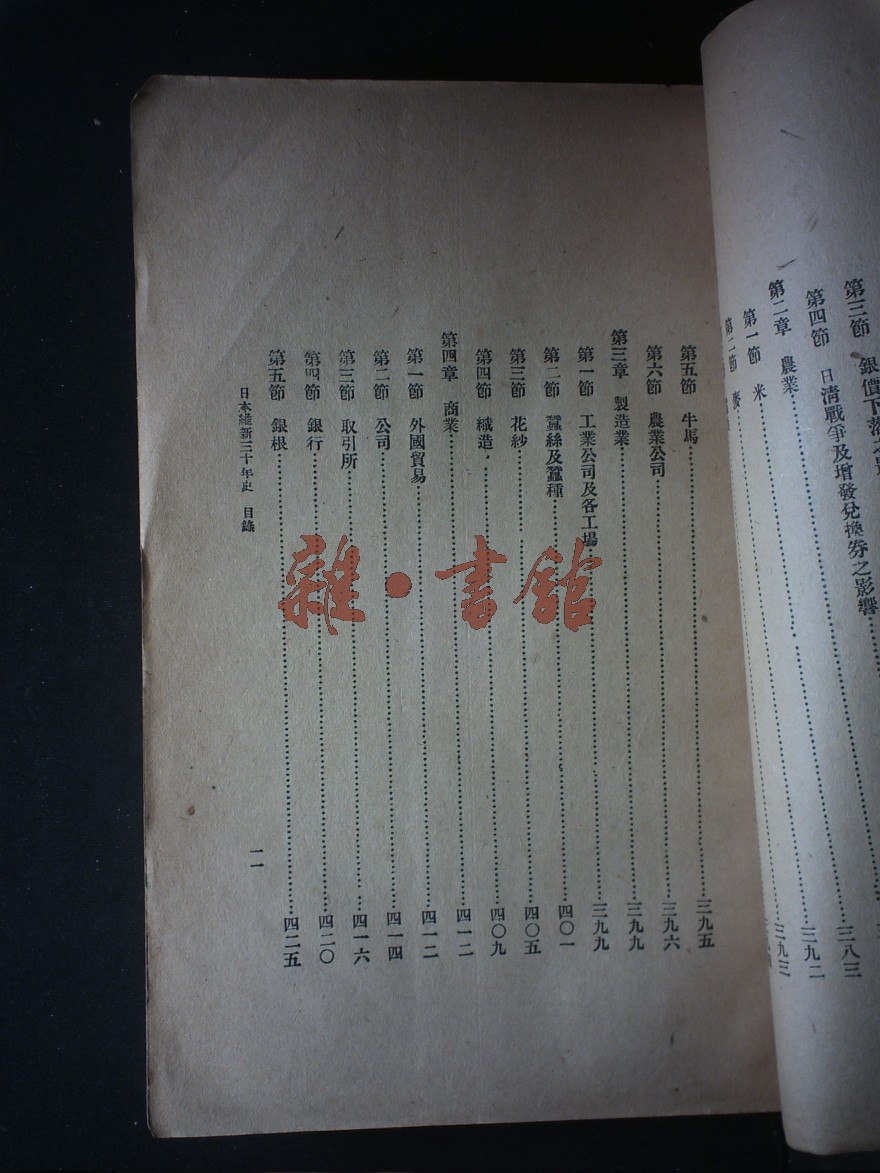 第三節 銀價下落之
第四節 日清戰爭及增發兌換券之影響
三八三
第二章 農業
三九二
第一節 米
三九三
第二節 麥
第五節 牛馬 三九五
第六節 農業公司 三九六
第三章 製造業 三九九
第一節 工業公司及各工場 三九九
第二節 蠶絲及蠶種 四〇一
第三節 花紗 四〇五
第四節 織造 四〇九
第四章 商業 四一二
第一節 外國貿易 四一二
第二節 公司 四一四
第三節 取引所 四一六
第四節 銀行 四二〇
第五節 銀根 四二五
日本維新三十年史 目錄
一一
雜·書館